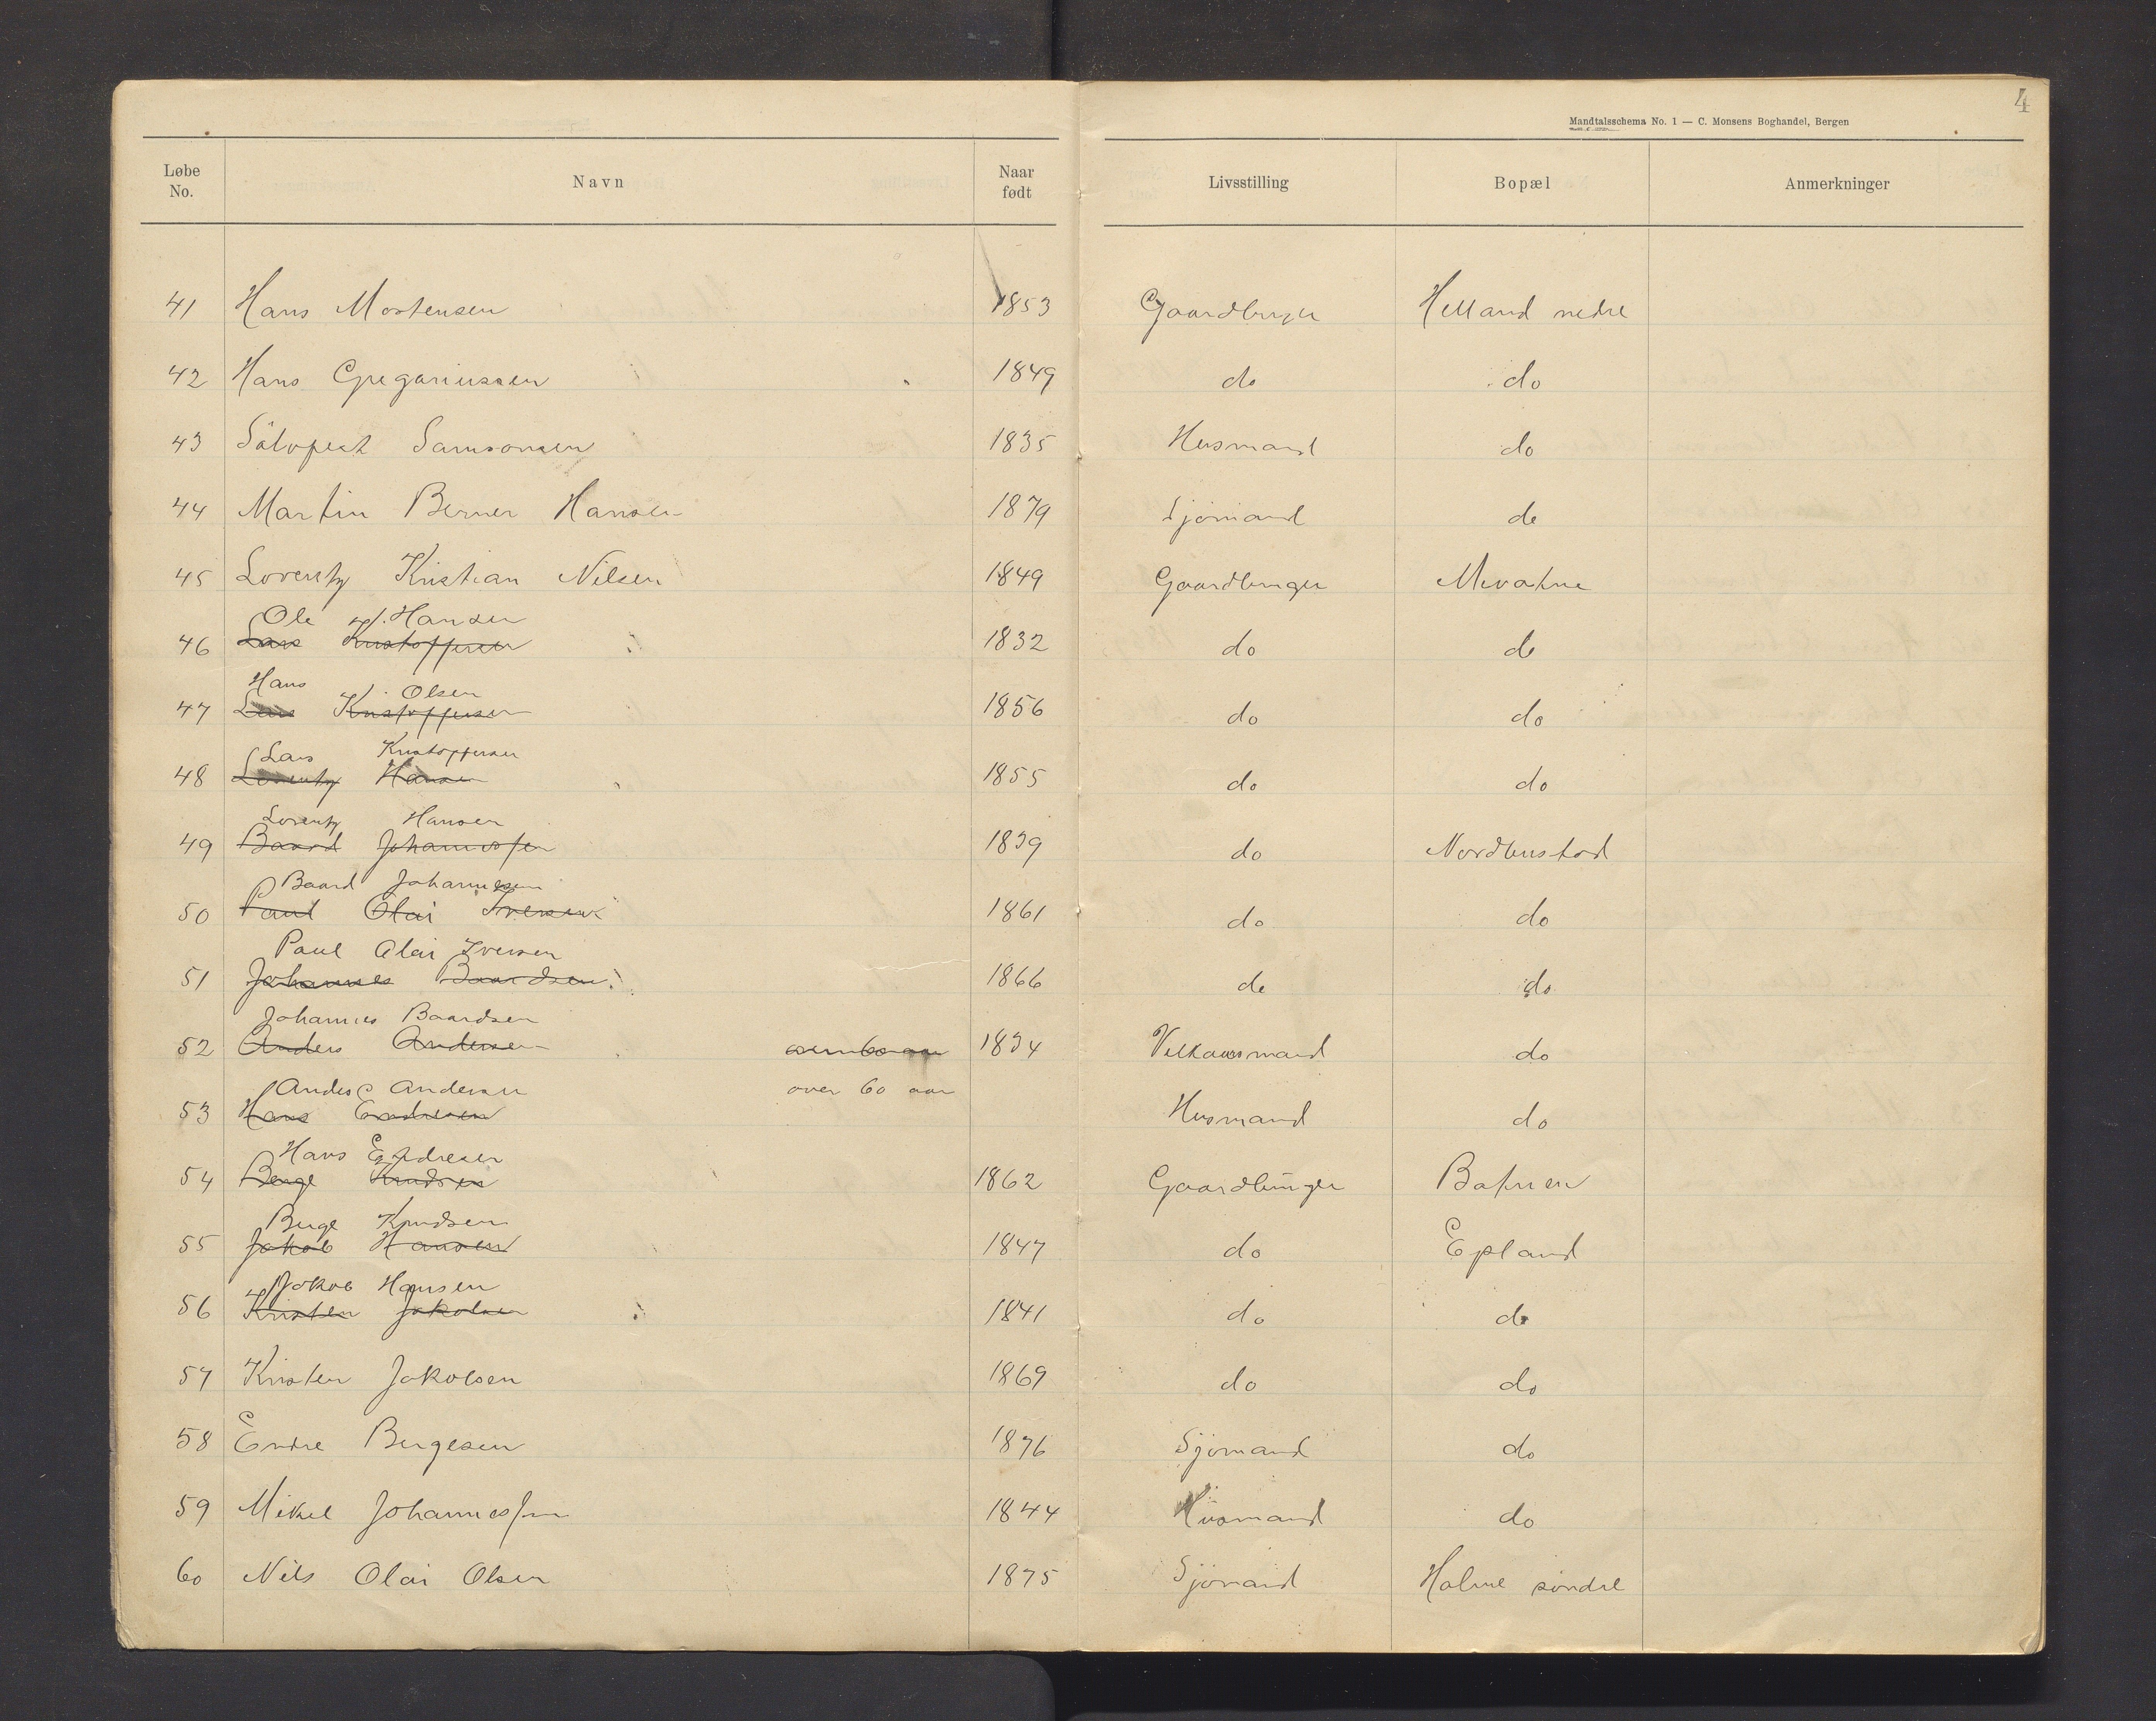 4
Mandtalsschema No. 1 — C. Monsens Boghandel, Bergen
Løbe No. Navn Naar født Livsstilling Bopæl Anmerkninger
41 Hans Mortensen 1853 Gaardbruger Helland nedre
42 Hans Gregoriussen 1849 do do
43 Samsonsen 1835 Husmand do
44 Martin Berner Hansen 1879 Sjömand do
45 Lorentz Kristian Nilsen 1849 Gaardbruger
Ole Hansen
46 Lars Kristoffersen 1832 do do
Hans Olsen
47 Lars Kristoffersen 1856 do do
Lars Kristoffersen
48 Lorentz Hansen 1855 do do
Lorentz Hansen
49 Baard Johannessen 1839 do Nordbustad
Baard Johannesen
50 Paul Olai Iversen 1861 do do
Paul Olai Iversen
51 Johannes Baardsen 1866 do do
Johannes Baardsen
52 Anders Andersen over 60 aar 1834 do
Anders Andersen over 60 aar
53 Hans Endresen Husmand do
Hans Endresen
54 Berge Knudsen 1862 Gaardbruger
Berge Knudsen
55 Jakob Hansen 1847 do Epland
Jakob Hansen
56 Kristen Jakobsen 1841 do do
57 Kristen Jakobsen 1869 do do
58 Endre Bergesen 1876 Sjömand do
59 Mikel Johannessen 1844 Husmand do
60 Nils Olai Olsen 1875 Sjömand Holme söndre